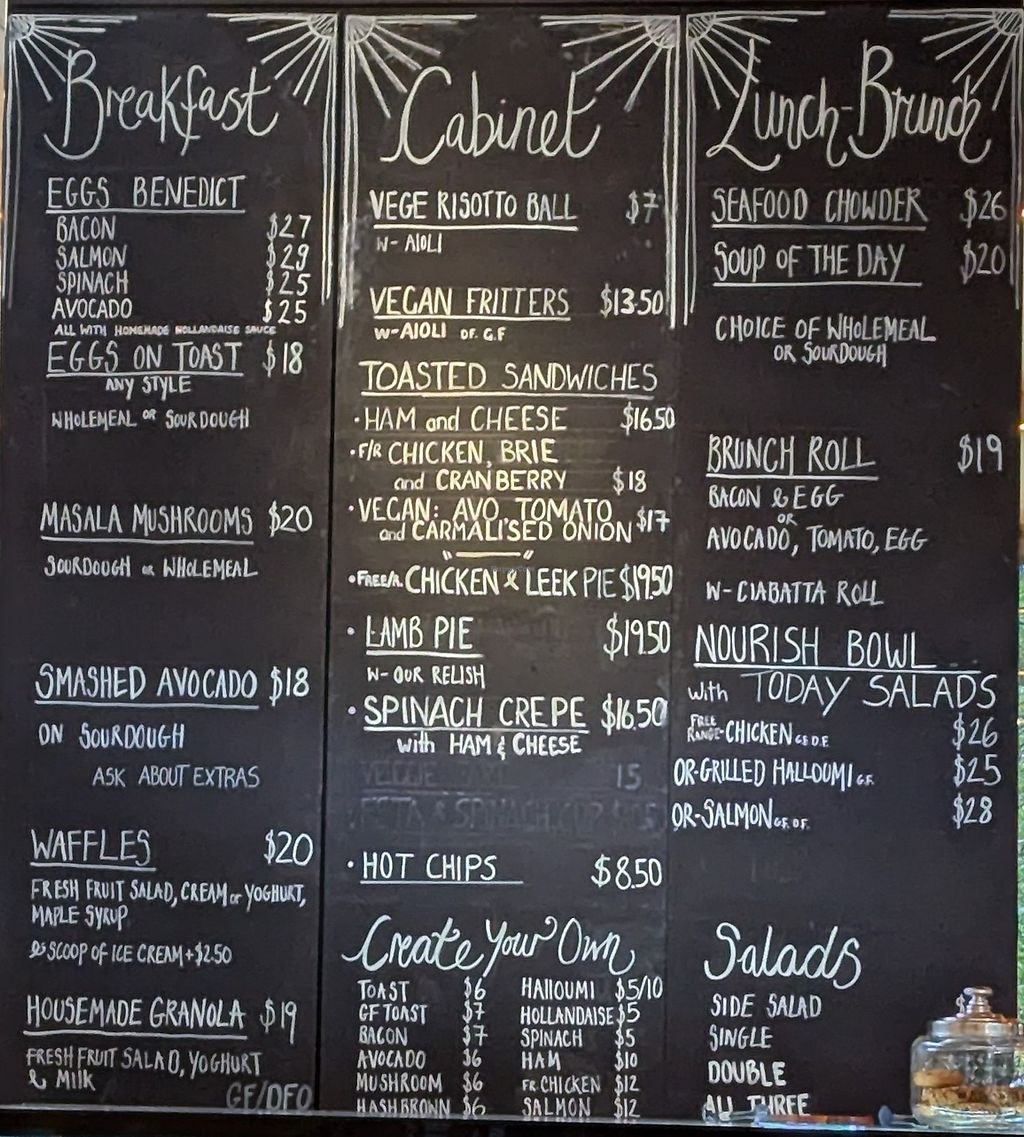 Breakfast
EGGS BENEDICT
BACON $27
SALMON $29
SPINACH $25
AVOCADO $25
ALL WITH HOMEMADE HOLLANDAISE SAUCE
EGGS ON TOAST $18
ANY STYLE
WHOLEMEAL OR SOURDOUGH
MASALA MUSHROOMS $20
SOURDOUGH OR WHOLEMEAL
SMASHED AVOCADO $18
ON SOURDOUGH
ASK ABOUT EXTRAS
WAFFLES $20
FRESH FRUIT SALAD, CREAM or YOGHURT,
MAPLE SYRUP
& SCOOP OF ICE CREAM +$2.50
HOUSEMADE GRANOLA $19
FRESH FRUIT SALAD, YOGHURT
& MILK
GF/DFO
Cabinet
VEGE RISOTTO BALL $7
W- AIOLI
VEGAN FRITTERS $13.50
W-AIOLI DF. G.F
TOASTED SANDWICHES
• HAM and CHEESE $16.50
• F/R CHICKEN, BRIE
and CRANBERRY $18
• VEGAN: AVO, TOMATO
and CARMALISED ONION $17
• FREE/R. CHICKEN & LEEK PIE $19.50
• LAMB PIE $19.50
W- OUR RELISH
• SPINACH CREPE $16.50
with HAM & CHEESE
15
• HOT CHIPS $8.50
Create Your Own
TOAST $6
GF TOAST $7
BACON $7
AVOCADO $6
MUSHROOM $6
HASHBROWN $6
HAlloUMI $5/10
HOLLANDAISE $5
SPINACH $5
HAM $10
FR. CHICKEN $12
SALMON $12
Lunch-Brunch
SEAFOOD CHOWDER $26
SOUP OF THE DAY $20
CHOICE OF WHOLEMEAL
OR SOURDOUGH
BRUNCH ROLL $19
BACON & EGG
OR
AVOCADO, TOMATO, EGG
W- CIABATTA ROLL
NOURISH BOWL
with TODAY SALADS
FREE RANGE-CHICKEN G.F. D.F. $26
OR-GRILLED HALLOUMI G.F. $25
OR-SALMON G.F. D.F. $28
Salads
SIDE SALAD
SINGLE
DOUBLE
ALL THREE